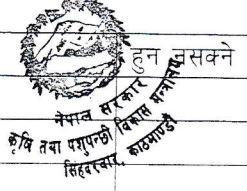 हुन नसक्ने
नेपाल सरकार
कृषि तथा पशुपन्छी विकास मन्त्रालय
सिंहदरबार, काठमाण्डौ